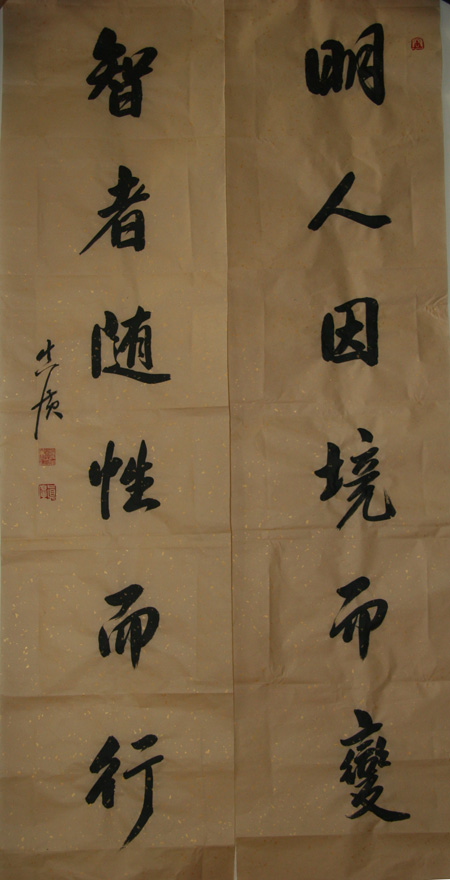 明人因境而變
智者随性而行